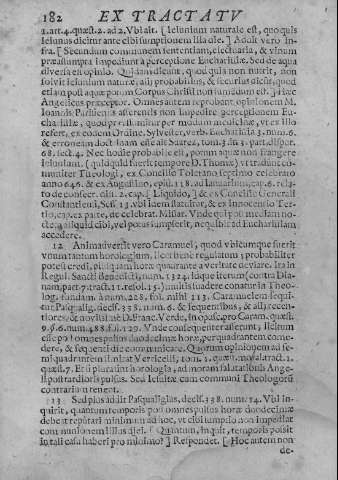 182 EX TRACTATV
1. art. 4. quæst. 2. ad 2. Vbi ait. [ Ieiunium naturale est, quo quis
Ieiunus dicitur ante cibi sumptionem illa die. ] Adest vero In-
fra. [ Secundum communem sententiam, electuaria, & vinum
præsumpta impediunt à perceptione Eucharistiæ. Sed de aqua
diversa est opinio. Quidam dicunt, quod quia non nutrit, non
solvit ieiunium naturæ, alij probabilius, & securius dicunt, quod
etiam post aquam porum Corpus Christi non sumendum est. ] Hæc
Angelicus præceptor. Omnes autem reprobant opinionem M.
Ioannis Parisiensis asserentis non impedire perceptionem Eu-
charistiæ, quod præsumitur per modum medicinæ, vt ex illo
refert, ex eodem Ordine, Sylvester, verb. Eucharistia 3. num. 6.
& erroneam docet Suarez, tom. 3. in 3. part. dispor.
68. sect. 4. Nec hodie probabile est, potum aquæ non frangere
Ieiunium. ( quidquid fuerit tempore D. Thomæ ) vt tradunt com-
muniter Theologi, ex Concilio Toletano septimo celebrato
anno 646. & ex Augustino, epist. 118. ad Ianuarium, cap. 6. rela-
to de consecr. dist. 2. cap. [ Liquido, ] & ex Concilio Generali
Constantiensi, Sess. 13. vbi idem statuitur, & ex Innocentio Ter-
tio, cap. ex parte, de celebrat. Missar. Vnde qui post mediam no-
ctem, aliquid cibi, vel potus sumpserit, nequibit ad Eucharistiam
accedere.
12 Animadvertit vero Caramuel, quod vbicumque fuerit
vnum tantum horologium, licet bene regulatum; probabiliter
potest credi, plusquam horæ quadrante a veritate deviare. Ita in
Regul. Sancti Benedicti, num. 1324. Idque iterum (contra Dia-
nam, part. 9. tract. 11. resol. 15.) multis suadere conatur in Theo-
log. fundam. à num. 228. fol. mihi 113. Caramuelem sequi-
tur Pasqualig. decis. 338. num. 6. & sequentibus, & alij recen-
tiores, & novissimè D. Franc. Verde, in opusc. pro Caram. quæst.
9. §. 6. num. 488. fol. 129. Vnde consequenter asserunt, licitum
esse post omnes pulsus duodecimæ horæ, per quadrantem comede-
re, & sequenti die communicare. Quorum opinionem ad se-
miquadrantem limitat Verricelli, tom. 1. quæst. moral. tract. 1.
quæst. 7. Et si plura sint horologia, ad moram salutationis Ange-
lis post tardioris pulsus. Sed Iesuitæ cum communi Theologorũ
contrarium tenent.
13 Sed pius addit Pasqualigius, decis. 338. num. 14. Vbi in-
quirit, quantum temporis post omnes pulsus horæ duodecimæ
debeat reputari minimum ad hoc, vt cibi sumptio non impediat
communionem illius diei. [ Quantum, inquit, temporis possit
in tali casu haberi pro minimo? ] Respondet. [ Hoc autem non
de-